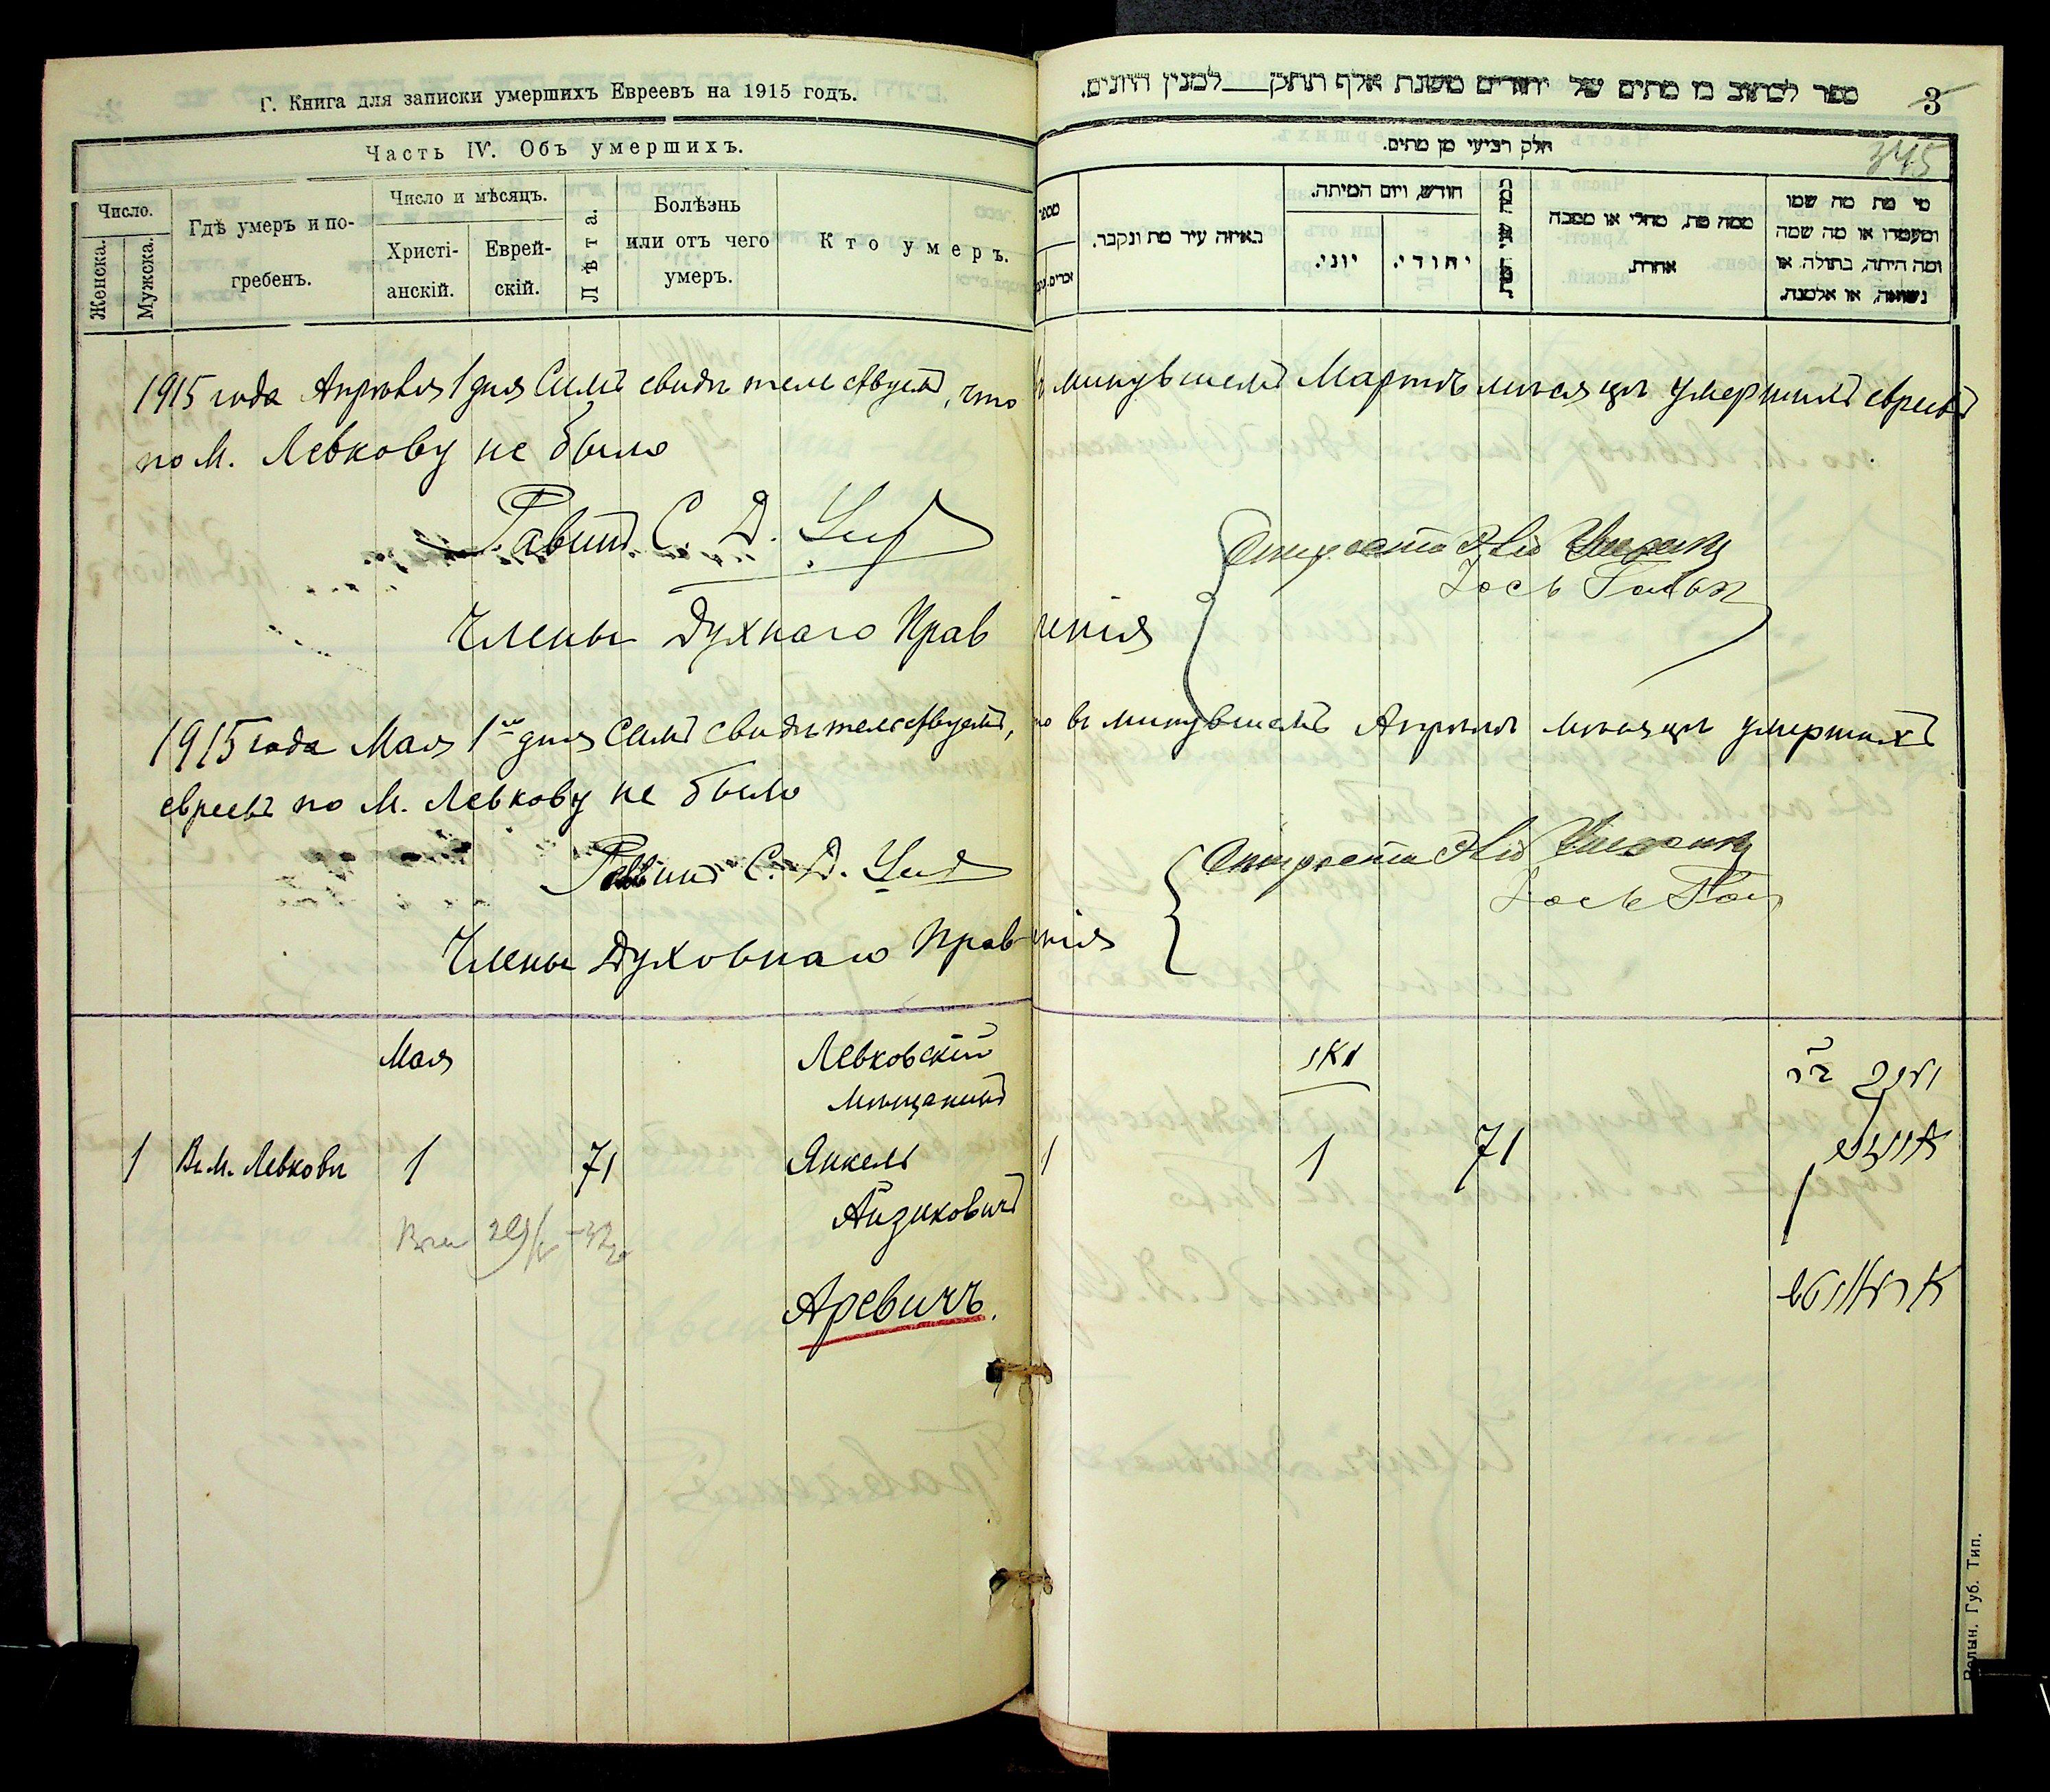 Г. Книга для записки умершихъ Евреевъ на 1915 годъ.
Часть IV. Объ умершихъ.
Число.
Женска.
Мужска.
Гдѣ умеръ и по-
гребенъ.
Число и мѣсяцъ.
Христі-
анскій.
Еврей-
скій.
Лѣта.
Болѣзнь
или отъ чего
умеръ.
Кто умеръ.
ספר לכתוב מן מתים של יהודים משנת אלף תתק___למנין היונים.
3
345
חלק רביעי מן מתים.
מספר
באיזה עיר מת ונקבר.
חודש, ויום המיתה.
יוני.
יהודי.
ממה מת, מחלי או מסבה
אחרת.
מי מת מה שמו
ומעמדו או מה שמה
ומה היתה, בתולה או
נשואה, או אלמנה.
1915 года Апрѣля 1 дня Симъ свидѣтельствуемъ, что въ минувшемъ Мартѣ мѣсяцѣ умершихъ евреевъ
по М. Левкову не было
Равинъ С. Д.
Члены Духнаго Правленія
Староста
Іось
1915 года Мая 1го дня Симъ свидѣтельствуемъ, что въ минувшемъ Апрѣлѣ мѣсяцѣ умершихъ
евреевъ по М. Левкову не было
Раввинъ С. Д.
Члены Духовнаго Правленія
Староста
Іось
Мая
Левковскій
мѣщанинъ
1 В. М. Левковѣ 1 71 Янкель
Айзиковичъ
Аревичъ.
1 1 71
Волын. Губ. Тип.